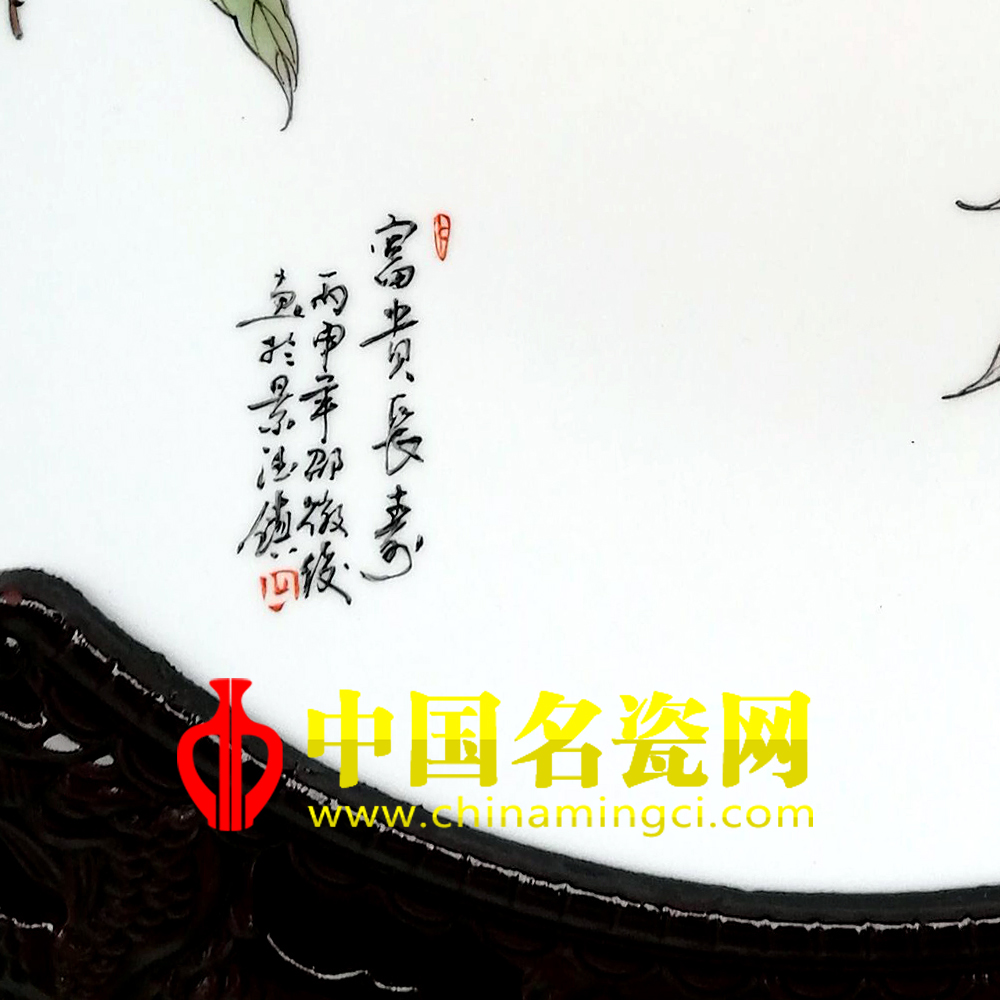 富貴長壽
丙申年邵徽俊
畫於景德鎮
中国名瓷网
www.chinamingci.com